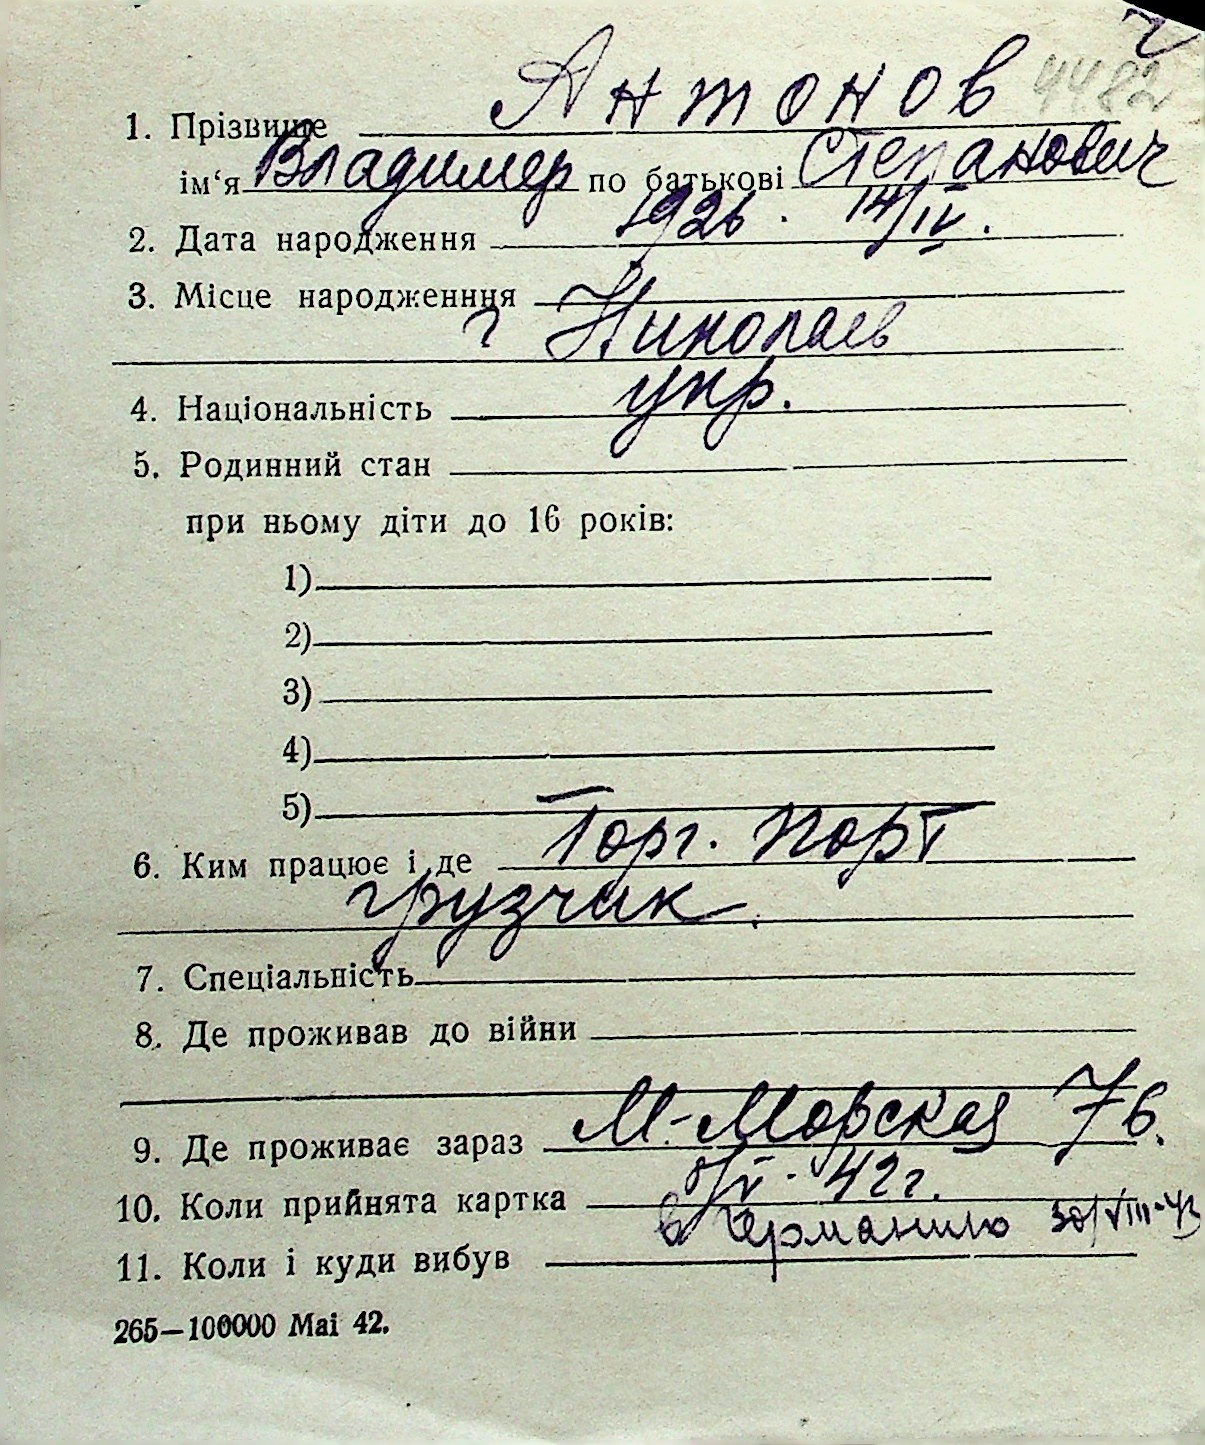 4482
1. Прізвище Антонов
ім‘я Владимер по батькові Степанович
2. Дата народження 1926. 14/IV.
3. Місце народженння
г Николаев
4. Національність укр.
5. Родинний стан
при ньому діти до 16 років:
1)
2)
3)
4)
5)
6. Ким працює і де Торг. порт
грузчик.
7. Спеціальність
8. Де проживав до війни
9. Де проживає зараз М.-Морская 76.
10. Коли прийнята картка /V. 42 г.
11. Коли і куди вибув в Германию 30/VIII-43
265—100000 Mai 42.